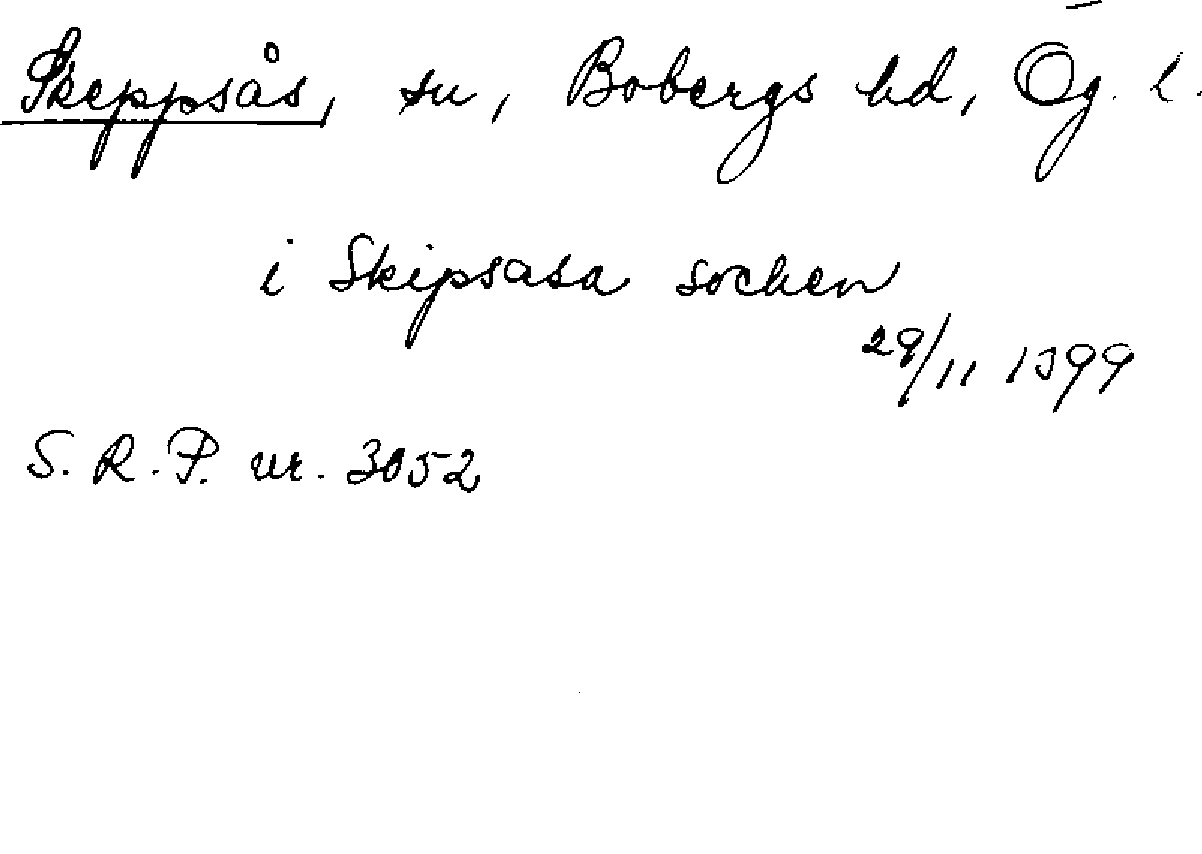 Skeppsås, sn, Bobergs hd, Ög. l.
i Skipsasa sochen
29/11 1399
S. R. P. nr. 3052